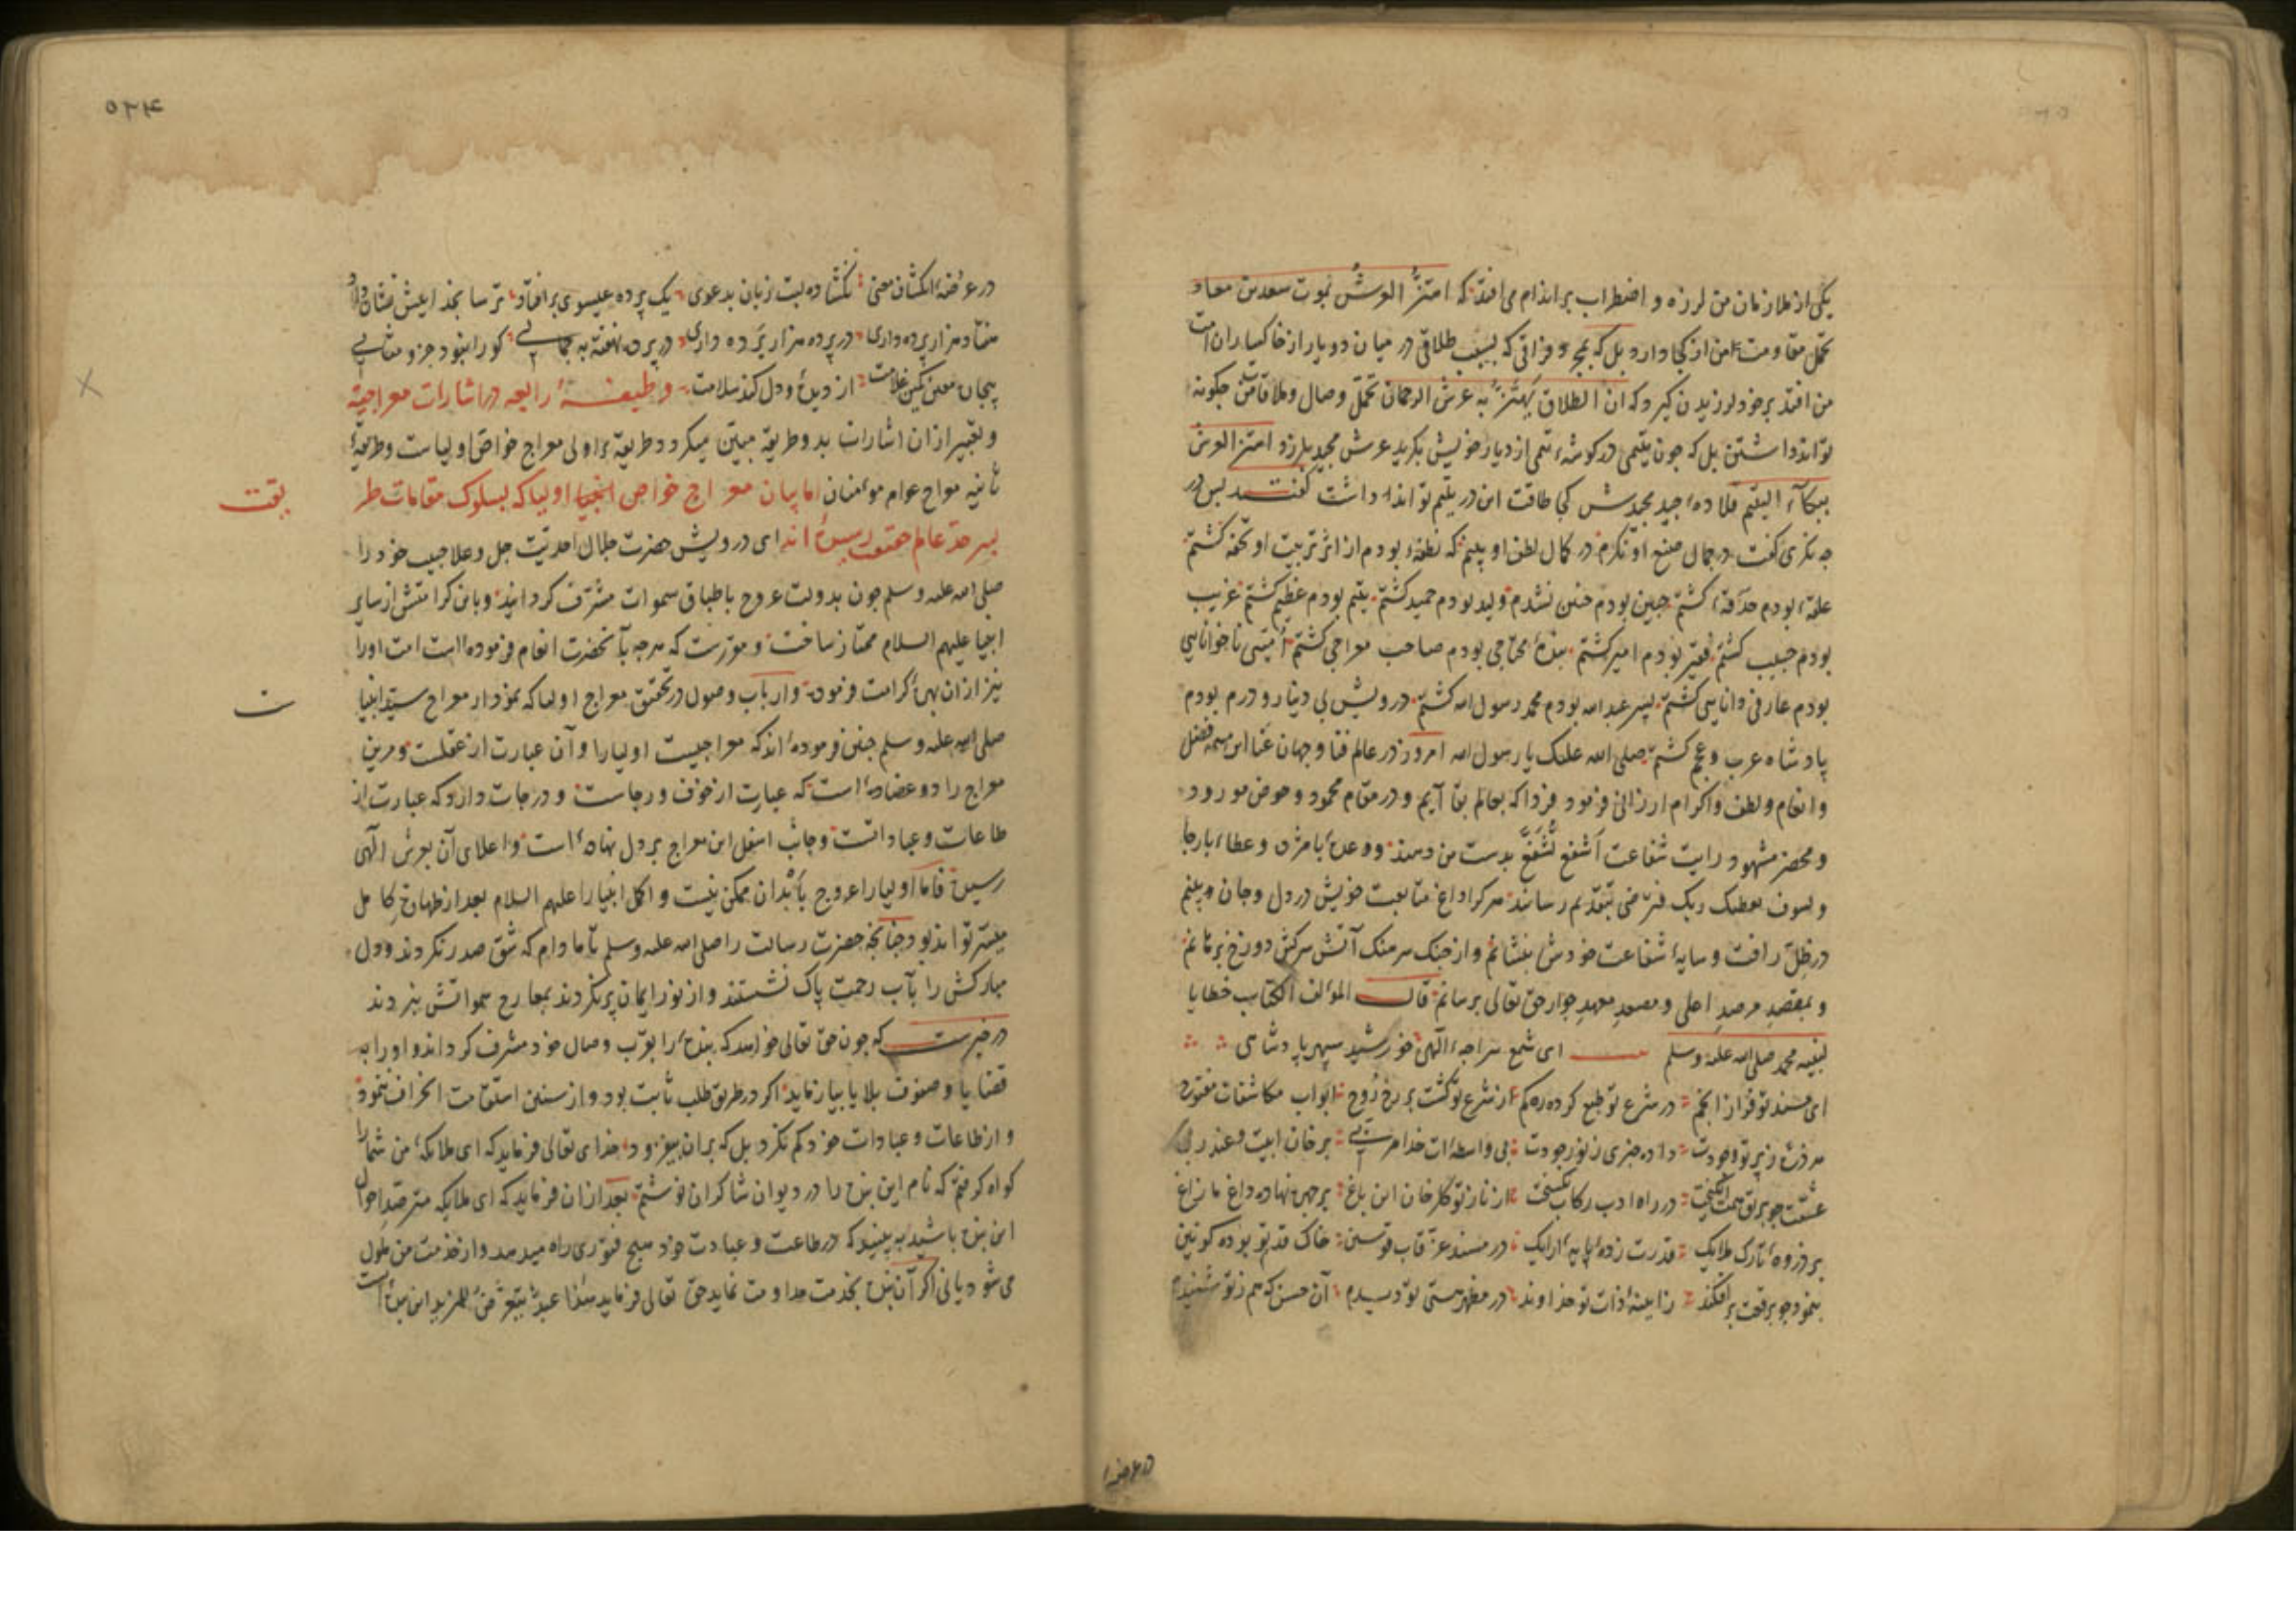 یکی از ملازمان من لرزه و اضطراب بر اندام می افتد که اهتزّ العرش بموت سعد بن معاد
تحمّل مقاومت من از کجا دارد بل که بمجرد فراقی که بسبب طلاقی در میان دو یار از خاکساران امت
من افتد بر خود لرزیدن گیرد که ان الطلاق یهتزّ به عرش الرحمان تحمّل وصال و ملاقات من چکونه
تواند داشتن بل که چون یتیمی در کوشهٔ تمی از دیار خویش بکرید عرش مجید بلرزد اهتز العرش
ببکآء الیتیم قلادهٔ جید مجدش کی طاقت این در یتیم تواند داشت کفتند پس در
چه نکری کفت در جمال صنع او نکرم در کمال لطف او بینم که نطفهٔ بودم از اثر تربیت او تحفه کشتم
علقهٔ بودم حدقهٔ کشتم جنین بودم حنین نشدم ولید بودم حمید کشتم یتیم بودم عظیم کشتم غریب
بودم حبیب کشتم فقیر بودم امیر کشتم بندهٔ محتاجی بودم صاحب معراجی کشتم امیّتی ناخوانایی
بودم عارفی دانایی کشتم پسر عبد الله بودم محمد رسول الله کشتم درویش بی دینار و درم بودم
پادشاه عرب و عجم کشتم صلی الله علیک یا رسول الله امروز در عالم فنا و جهان عنا این همه فضل
و انعام و لطف و اکرام ارزانی فرمود فردا که بعالم بقا آیم و در مقام محمود و حوض مورود
و محضر مشهود رایت شفاعت اشفع تشفع بدست من دهند و وعدهٔ با شرف و عطاء بارجا
و لسوف یعطیک ربک فترضی بتقدیم رسانند هر کرا داغ متابعت خویش در دل و جان او بینم
در ظلّ رافت و سایهٔ شفاعت خودش بنشانم و از چنک سرهنک آتش سرکش دوزخ برهانم
و بمقصد مرصد اعلی و مصعد معهد جوار حق تعالی برسانم قال المؤلف الکتاب خطابا
لنبیه محمد صلی الله علیه وسلم ای شمع سراچهٔ الهی خورشید سپهر پادشاهی
ای مسند تو فراز انجم در شرع تو طبع کرده ره کم از شرع تو کشت بر رخ روح ابواب مکاشفات مفتوح
هر ذره ز پرتو وجودت داده خبری ز نور جودت بی واسطه ات خدا مربی بر خان ابیت عند ربی
عشقت چو براق همت انکیخت در راه ادب رکاب بکسیخت از ناز تو کلرخان این باغ بر جبین نهاده داغ ما زاغ
بر ذروهٔ تارک ملایک قدرت زده پایهٔ ارایک در مسند عزّ قاب قوسین خاک قدم تو بوده کونین
بنمود چو برقعت بر افکند ز ایینهٔ ذات تو خداوند در مظهر هستی تو دیدم آن حسن که هم ز تو شنیدم
در عرضهٔ
۵۲۴
در عرضهٔ انکشاف معنی نکشاده لبت زبان بدعوی یک پرده عیسوی بر افتاد ترسا بخدایش نشان داد
هفتاد هزار پرده داری در پرده هزار پرده داری در پرده نهفته به جمالی کو را نبود جزو مثالی
پنجان معین کمین غلامت از دیده و دل کند سلامت وظیفهٔ رابعه در اشارات معراجیة
و تعبیر از ان اشارات بدو طریقه مبیّن میکردد طریقهٔ اولی معراج خواص اولیاست و طریقهٔ
ثانیه معراج عوام مؤمنان اما بیان معراج خواص اولیا که بسلوک مقامات طر
یقت
بسرحد عالم حقیقت رسیده اند ای درویش حضرت جلال احدیت جل و علا حبیب خود را
صلی الله علیه وسلم چون بدولت عروج باطباق سموات مشرّف کردانید و باین کرامتش از سایر
انبیا علیهم السلام ممتاز ساخت و مقرّرست که هرچه بآنحضرت انعام فرموده است امت او را
نیز از ان بهرهٔ کرامت فرموده و ارباب وصول در تحقیق معراج اولیا که نمودار معراج سیّد انبیا
ت
صلی الله علیه وسلم چنین فرموده اند که معراجیست اولیا را و آن عبارت از عقلست و مرین
معراج را دو عضاده است که عبارت از خوف و رجاست و درجات دارد که عبارت از
طاعات و عباداتست و جانب اسفل این معراج بر دل نهاده است و اعلای آن بعرش الهی
رسیده فاما اولیا را عروج بأبدان ممکن نیست و اکمل انبیا را علیهم السلام بعد از طهارت کامل
میسّر تواند بود چنانچه حضرت رسالت را صلی الله علیه وسلم تا مادام که شقّ صدر نکردند و دل
مبارکش را بآب رحمت پاک نشستند و از نور ایمان پر نکردند بمعارج سمواتش نبردند
در خبرست که چون حق تعالی خواهد که بندهٔ را بقرب وصال خود مشرف کرداند او را به
قضایا و صنوف بلایا بیازماید اکر در طریق طلب ثابت بود و از سنن استقامت انحراف ننمود
و از طاعات و عبادات خود کم نکرد بل که بر ان بیفزود خدای تعالی فرماید که ای ملائکهٔ من شما را
کواه کرفتم که نام این بنده را در دیوان شاکران نوشتم بعد از ان فرماید که ای ملایکه مترصّد احوال
این بنده باشید ببینید که در طاعت و عبادت خود هیچ فتوری راه میدهد و از خدمت من ملول
می شود یا نی اکر آن بنده بخدمت مداومت نماید حق تعالی فرماید هذا عبد یتعرّض للمزید این بندهٔ است